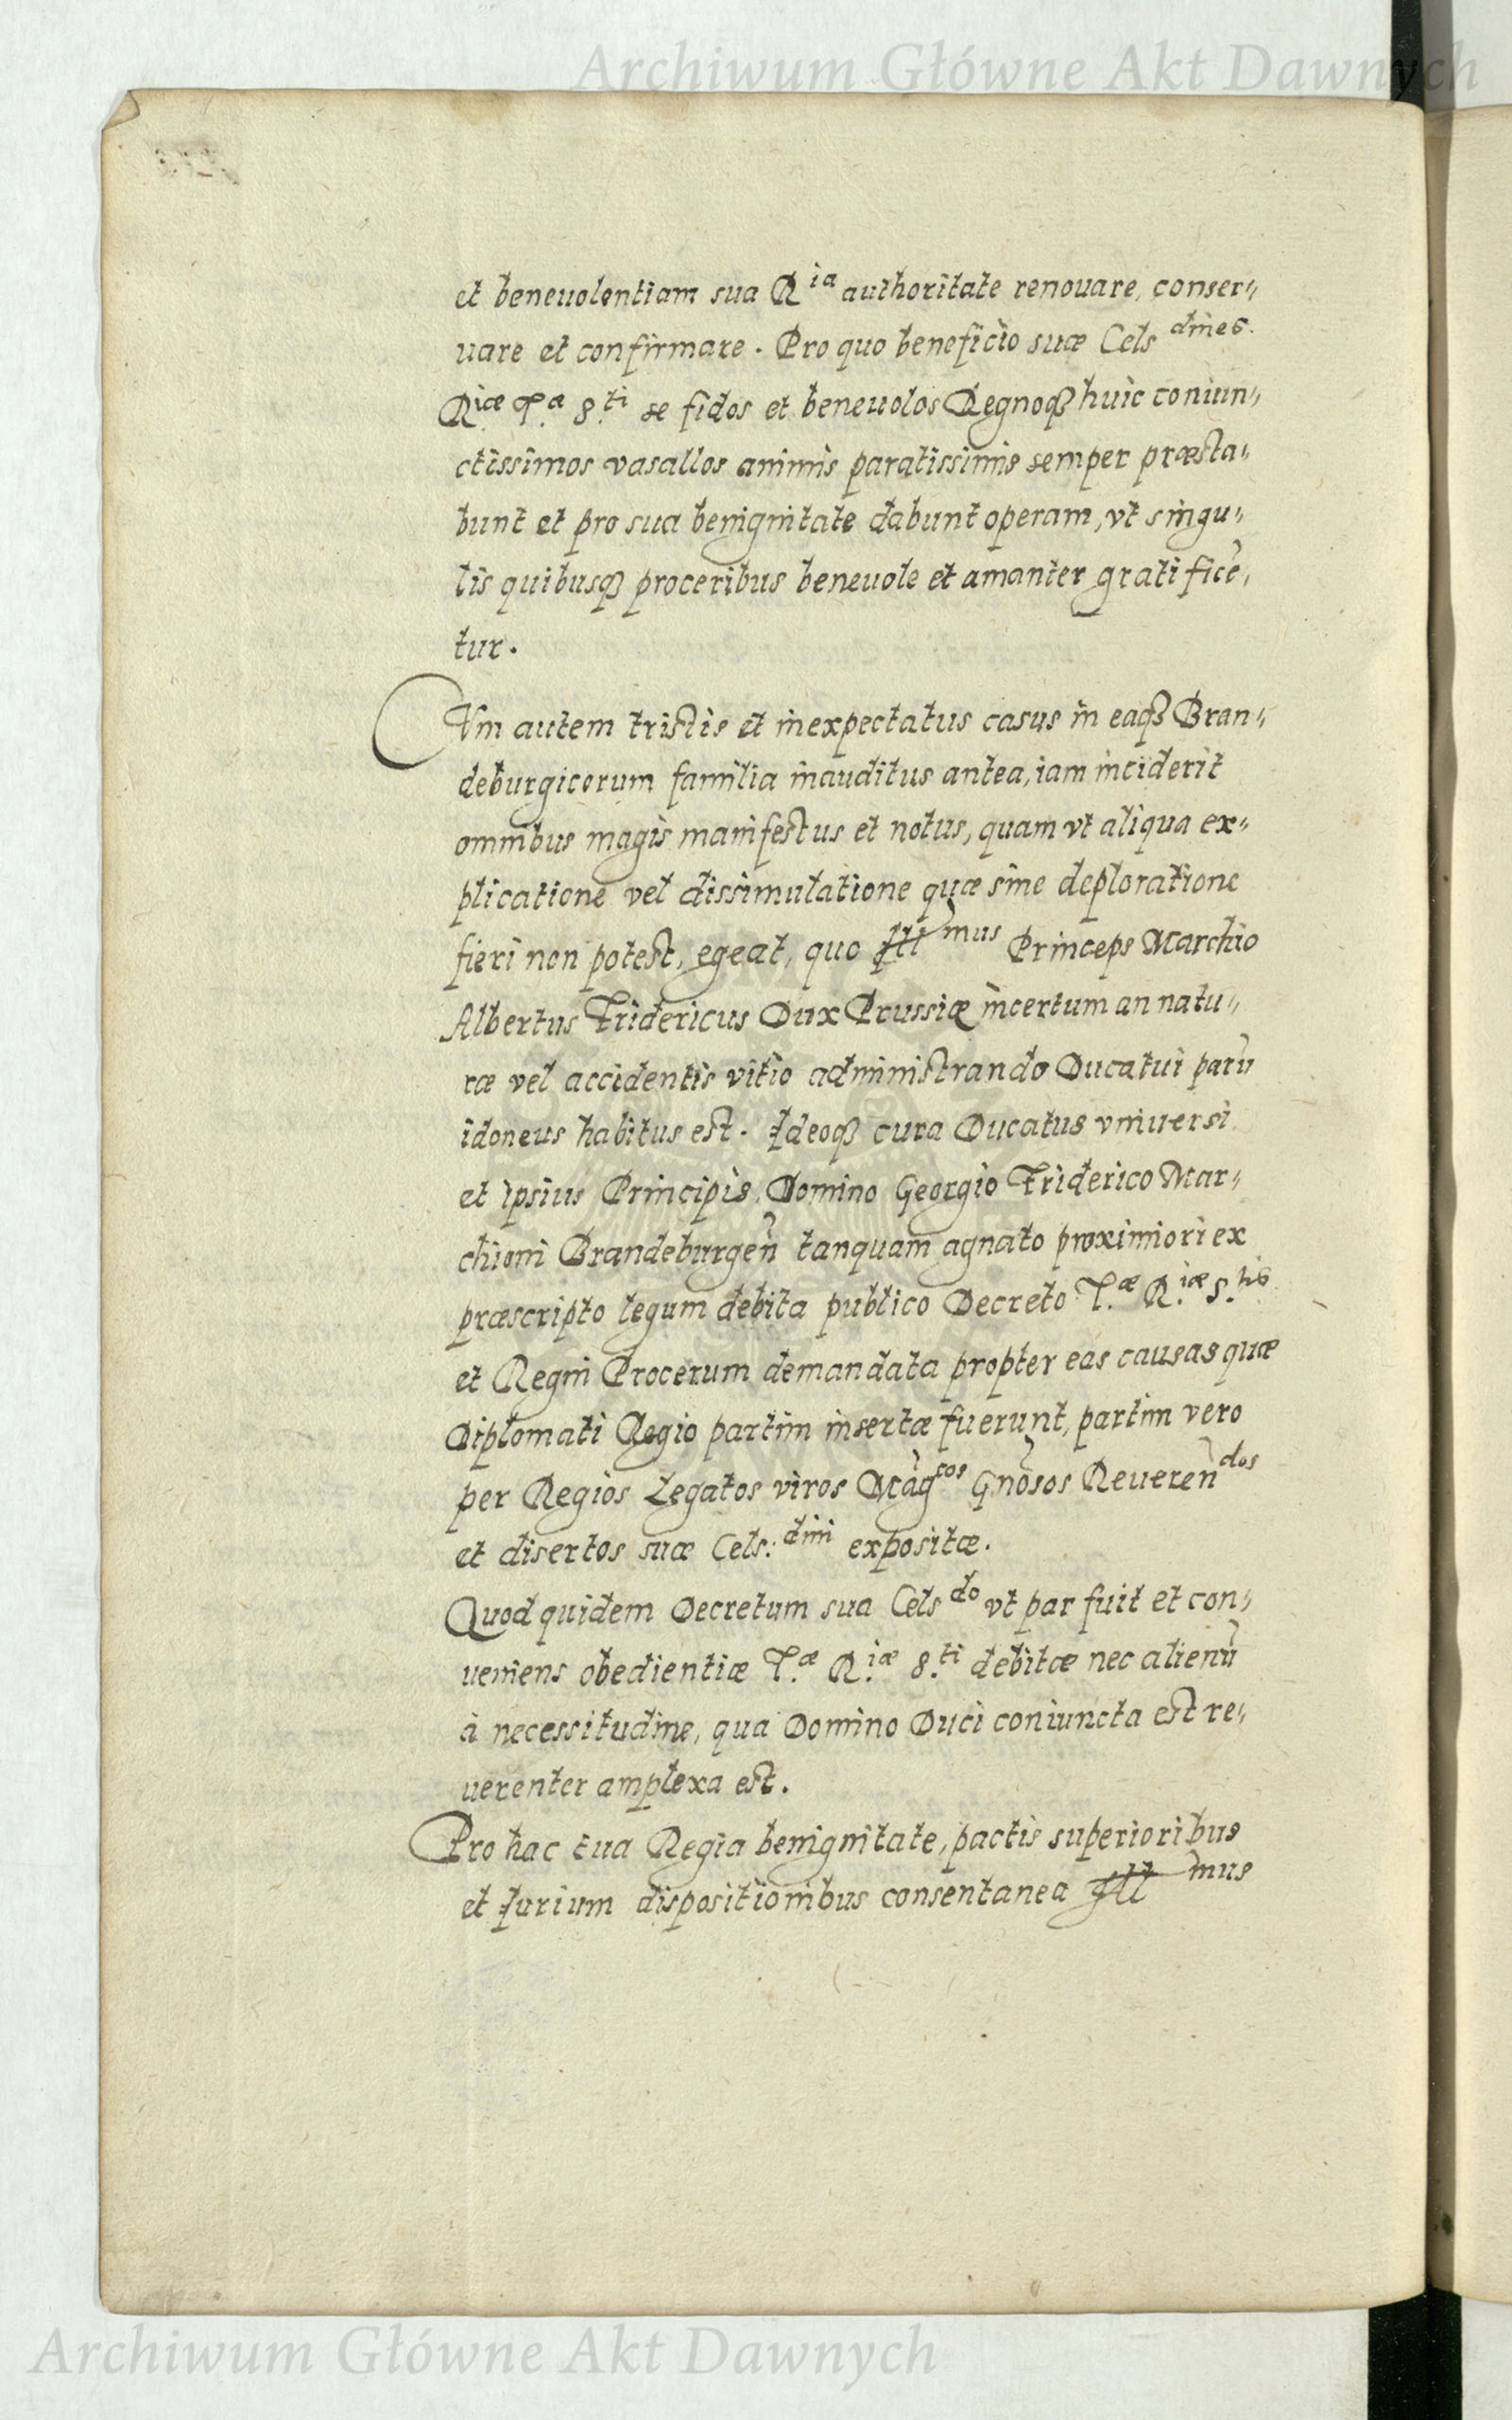 Archiwum Główne Akt Dawnych
et beneuolentiam sua R ia authoritate renouare, conser„
uare et confirmare. Pro quo beneficio suæ Cels dines.
R.icæ T.æ S.ti se fidos et beneuolos Regnoq3 huic coniun„
ctissimos vasallos animis paratissimis semper præsta„
bunt et pro sua benignitate dabunt operam, vt singu„
lis quibusq3 proceribus beneuole et amanter gratificē„
tur.
CVm autem tristis et inexpectatus casus in eaq3 Bran„
deburgicorum familia inauditus antea, iam inciderit
omnibus magis manifestus et notus, quam vt aliqua ex„
plicatione vel dissimulatione quæ sine deploratione
fieri non potest, egeat, quo Ill mus Princeps Marchio
Albertus Fridericus Dux Prussiæ incertum an natu„
ræ vel accidentis vitio administrando Ducatui parū
idoneus habitus est. Ideoq3 cura Ducatus vniuersi
et ipsius Principis, Domino Georgio Friderico Mar„
chioni Brandeburgeñ tanquam agnato proximiori ex
præscripto legum debita publico Decreto T.æ R.iæ S.tis
et Regni Procerum demandata propter eas causas quæ
Diplomati Regio partim insertæ fuerunt, partim vero
per Regios Legatos viros Mag̃cos Gñosos Reuereñdos
et disertos suæ Cels: dini expositæ.
Quod quidem Decretum sua Cels do vt par fuit et con„
ueniens obedientiæ T.æ R.iæ S.ti debitæ nec alienū
à necessitudine, qua Domino Duci coniuncta est re„
uerenter amplexa est.
Pro hac tua Regia benignitate, pactis superioribus
et Iurium dispositionibus consentanea Ill mus
Archiwum Główne Akt Dawnych